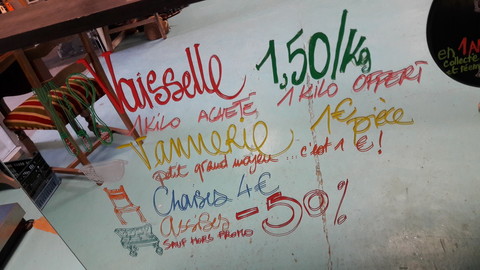 Vaisselle 1,50/Kg
1 KILO ACHETÉ, 1 KILO OFFERT
Vannerie 1€ pièce
petit grand moyen ... c'est 1 € !
Chaises 4€
Assises -50%
SAUF HORS PROMO
en 1
collecte
et réem